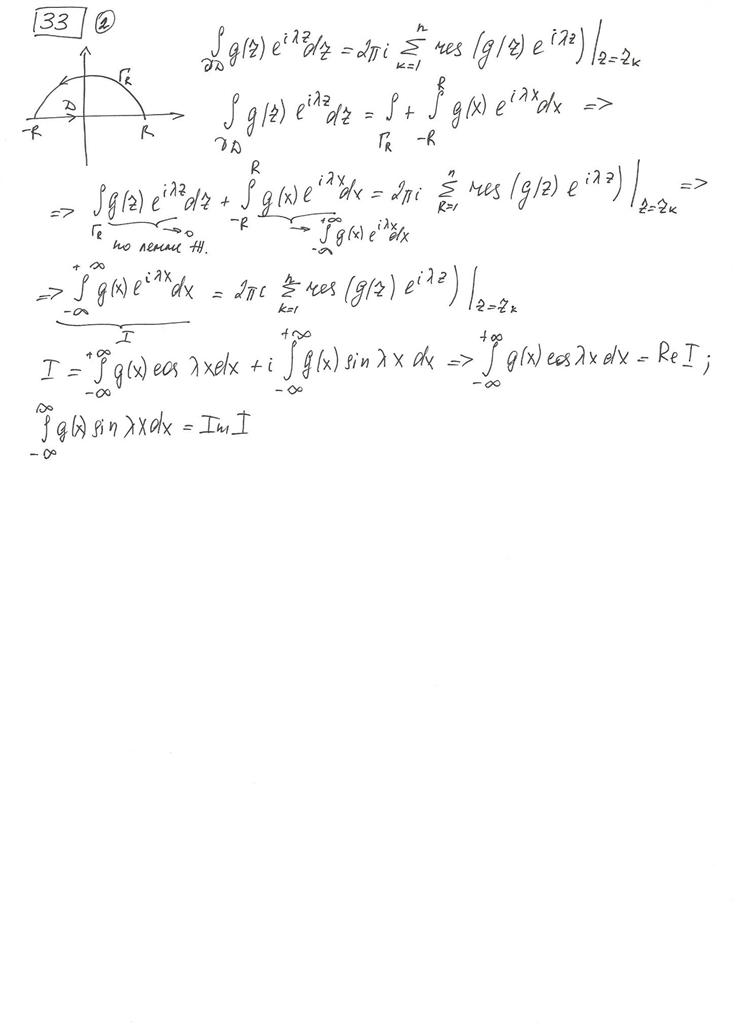 33 ②
∫_{∂D} g(z) e^{iλz} dz = 2πi ∑_{k=1}^{n} res (g(z) e^{iλz}) |_{z=z_k}
Γ_R
D
-R R
∫_{∂D} g(z) e^{iλz} dz = ∫_{Γ_R} + ∫_{-R}^{R} g(x) e^{iλx} dx =>
=> ∫_{Γ_R} g(z) e^{iλz} dz + ∫_{-R}^{R} g(x) e^{iλx} dx = 2πi ∑_{k=1}^{n} res (g(z) e^{iλz}) |_{z=z_k} =>
→ 0 → ∫_{-∞}^{+∞} g(x) e^{iλx} dx
по лемме Ж.
=> ∫_{-∞}^{+∞} g(x) e^{iλx} dx = 2πi ∑_{k=1}^{n} res (g(z) e^{iλz}) |_{z=z_k}
I
I = ∫_{-∞}^{+∞} g(x) cos λx dx + i ∫_{-∞}^{+∞} g(x) sin λx dx => ∫_{-∞}^{+∞} g(x) cos λx dx = Re I ;
∫_{-∞}^{∞} g(x) sin λx dx = Im I